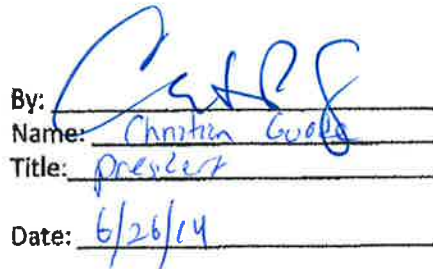 By:
Name: Christian
Title: President
Date: 6/26/14